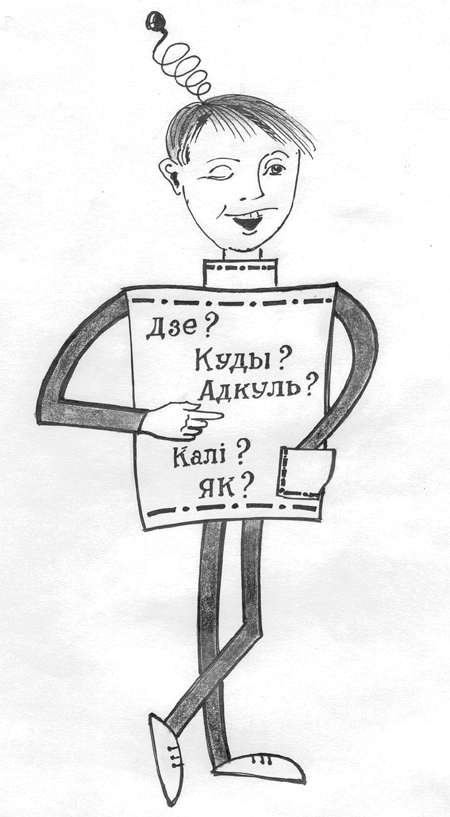 Дзе?
Куды?
Адкуль?
Калі?
ЯК?